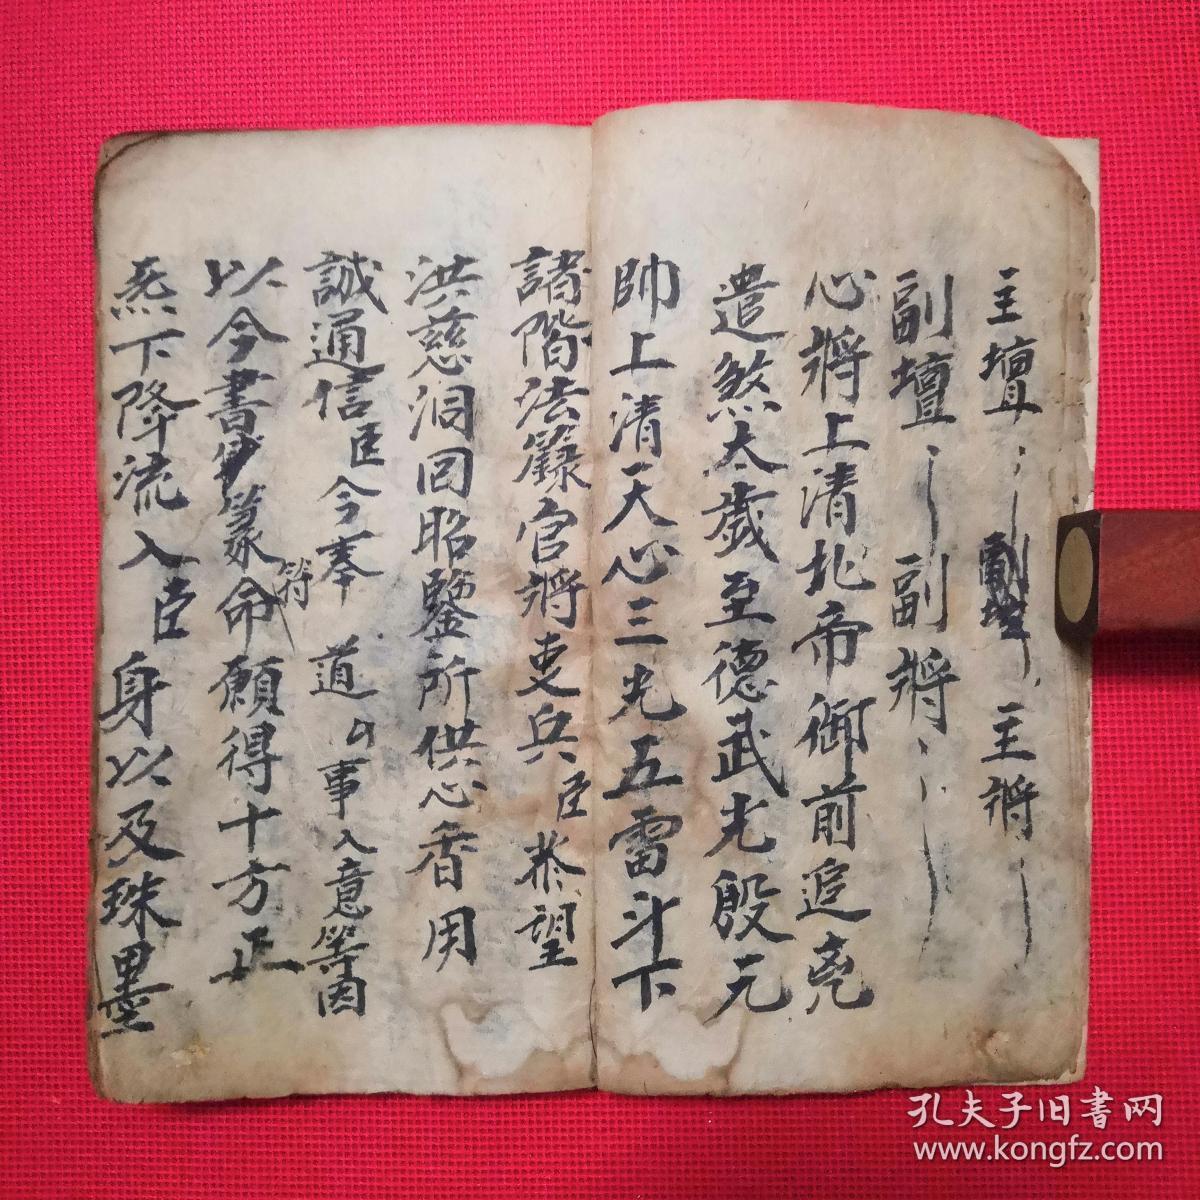 主壇 主將
副壇 副將
心將上清北帝御前追亮
遣煞太歲至德武光殷元
帥上清天心三光五雷斗下
諸階法籙官將吏兵臣恭望
洪慈洞回昭鑒所供心香用
誠通信臣今奉 道の事入意等因
以今書篆符命願得十方正
炁下降流入臣身以及珠墨
孔夫子旧書网
www.kongfz.com